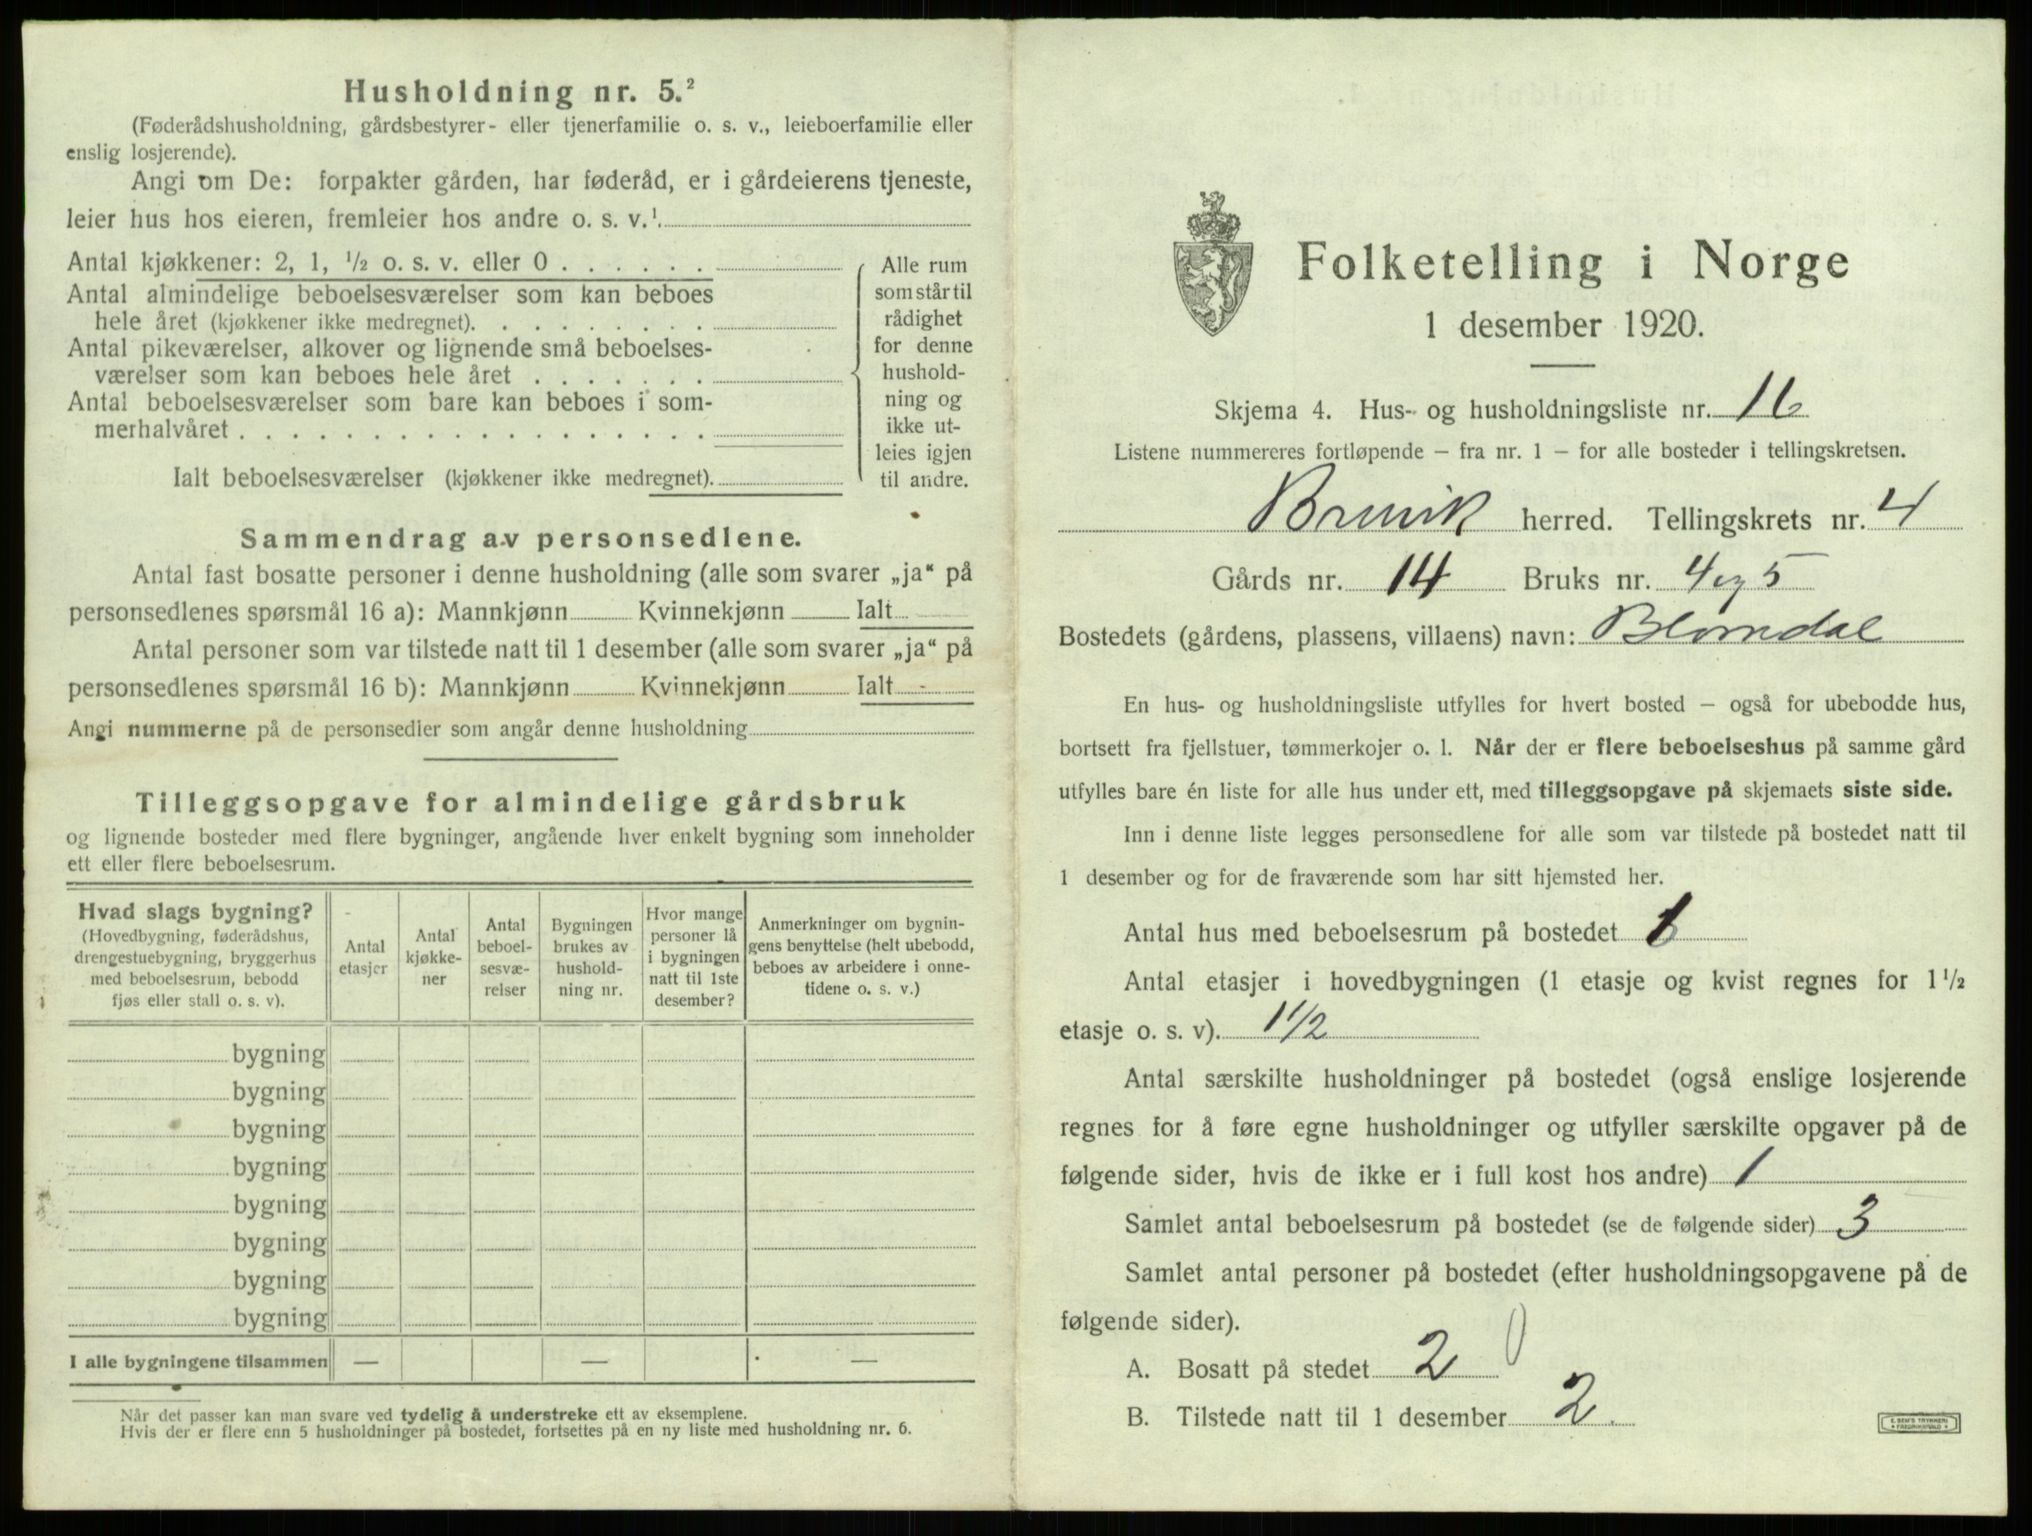 Husholdning nr. 5.²
(Føderådshusholdning, gårdsbestyrer- eller tjenerfamilie o. s. v., leieboerfamilie eller
enslig losjerende).
Angi om De: forpakter gården, har føderåd, er i gårdeierens tjeneste,
leier hus hos eieren, fremleier hos andre o. s. v.¹
Antal kjøkkener: 2, 1, ½ o. s. v. eller 0 . . . . . .
Antal almindelige beboelsesværelser som kan beboes
hele året (kjøkkener ikke medregnet). . . . . . . . .
Antal pikeværelser, alkover og lignende små beboelses-
værelser som kan beboes hele året . . . . . . .
Antal beboelsesværelser som bare kan beboes i som-
merhalvåret . . . . . . . . . . . . . . . . . .
Ialt beboelsesværelser (kjøkkener ikke medregnet).
Alle rum
som står til
rådighet
for denne
hushold-
ning og
ikke ut-
leies igjen
til andre.
Sammendrag av personsedlene.
Antal fast bosatte personer i denne husholdning (alle som svarer „ja“ på
personsedlenes spørsmål 16 a): Mannkjønn Kvinnekjønn Ialt
Antal personer som var tilstede natt til 1 desember (alle som svarer „ja“ på
personsedlenes spørsmål 16 b): Mannkjønn Kvinnekjønn Ialt
Angi nummerne på de personsedler som angår denne husholdning
Tilleggsopgave for almindelige gårdsbruk
og lignende bosteder med flere bygninger, angående hver enkelt bygning som inneholder
ett eller flere beboelsesrum.
Hvad slags bygning?
(Hovedbygning, føderådshus,
drengestuebygning, bryggerhus
med beboelsesrum, bebodd
fjøs eller stall o. s. v).
Antal
etasjer
Antal
kjøkke-
ner
Antal
beboel-
sesvæ-
relser
Bygningen
brukes av
hushold-
ning nr.
Hvor mange
personer lå
i bygningen
natt til 1ste
desember?
Anmerkninger om bygnin-
gens benyttelse (helt ubebodd,
beboes av arbeidere i onne-
tidene o. s. v.)
bygning
bygning
bygning
bygning
bygning
bygning
bygning
bygning
I alle bygningene tilsammen — — —
Når det passer kan man svare ved tydelig å understreke ett av eksemplene.
Hvis der er flere enn 5 husholdninger på bostedet, fortsettes på en ny liste med husholdning nr. 6.
Folketelling i Norge
1 desember 1920.
Skjema 4. Hus- og husholdningsliste nr. 16
Listene nummereres fortløpende – fra nr. 1 – for alle bosteder i tellingskretsen.
Bruvik herred. Tellingskrets nr. 4
Gårds nr. 14 Bruks nr. 4 og 5
Bostedets (gårdens, plassens, villaens) navn: Blomdal
En hus- og husholdningsliste utfylles for hvert bosted – også for ubebodde hus,
bortsett fra fjellstuer, tømmerkojer o. l. Når der er flere beboelseshus på samme gård
utfylles bare én liste for alle hus under ett, med tilleggsopgave på skjemaets siste side.
Inn i denne liste legges personsedlene for alle som var tilstede på bostedet natt til
1 desember og for de fraværende som har sitt hjemsted her.
Antal hus med beboelsesrum på bostedet 1
Antal etasjer i hovedbygningen (1 etasje og kvist regnes for 1 ½
etasje o. s. v). 1 ½
Antal særskilte husholdninger på bostedet (også enslige losjerende
regnes for å føre egne husholdninger og utfyller særskilte opgaver på de
følgende sider, hvis de ikke er i full kost hos andre) 1
Samlet antal beboelsesrum på bostedet (se de følgende sider) 3
Samlet antal personer på bostedet (efter husholdningsopgavene på de
følgende sider).
A. Bosatt på stedet 2 0
B. Tilstede natt til 1 desember 2.
E. SEM'S TRYKKERI
FREDRIKSHALD